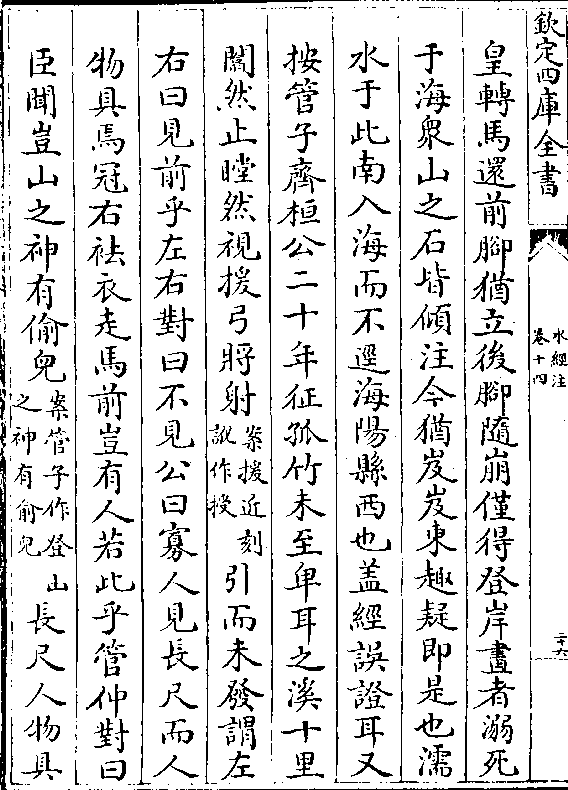 欽定四庫全書
水經注
卷十四
二十六
皇轉馬還前腳猶立後腳隨崩僅得登岸畫者溺死
于海衆山之石皆傾注今猶岌岌東趣疑即是也濡
水于此南入海而不逕海陽縣西也蓋經誤證耳又
按管子齊桓公二十年征孤竹未至卑耳之溪十里
闟然止瞠然視援弓將射
案援近刻
訛作授
引而未發謂左
右曰見前乎左右對曰不見公曰寡人見長尺而人
物具焉冠右袪衣走馬前豈有人若此乎管仲對曰
臣聞豈山之神有偷兒
案管子作登山
之神有俞兒
長尺人物具